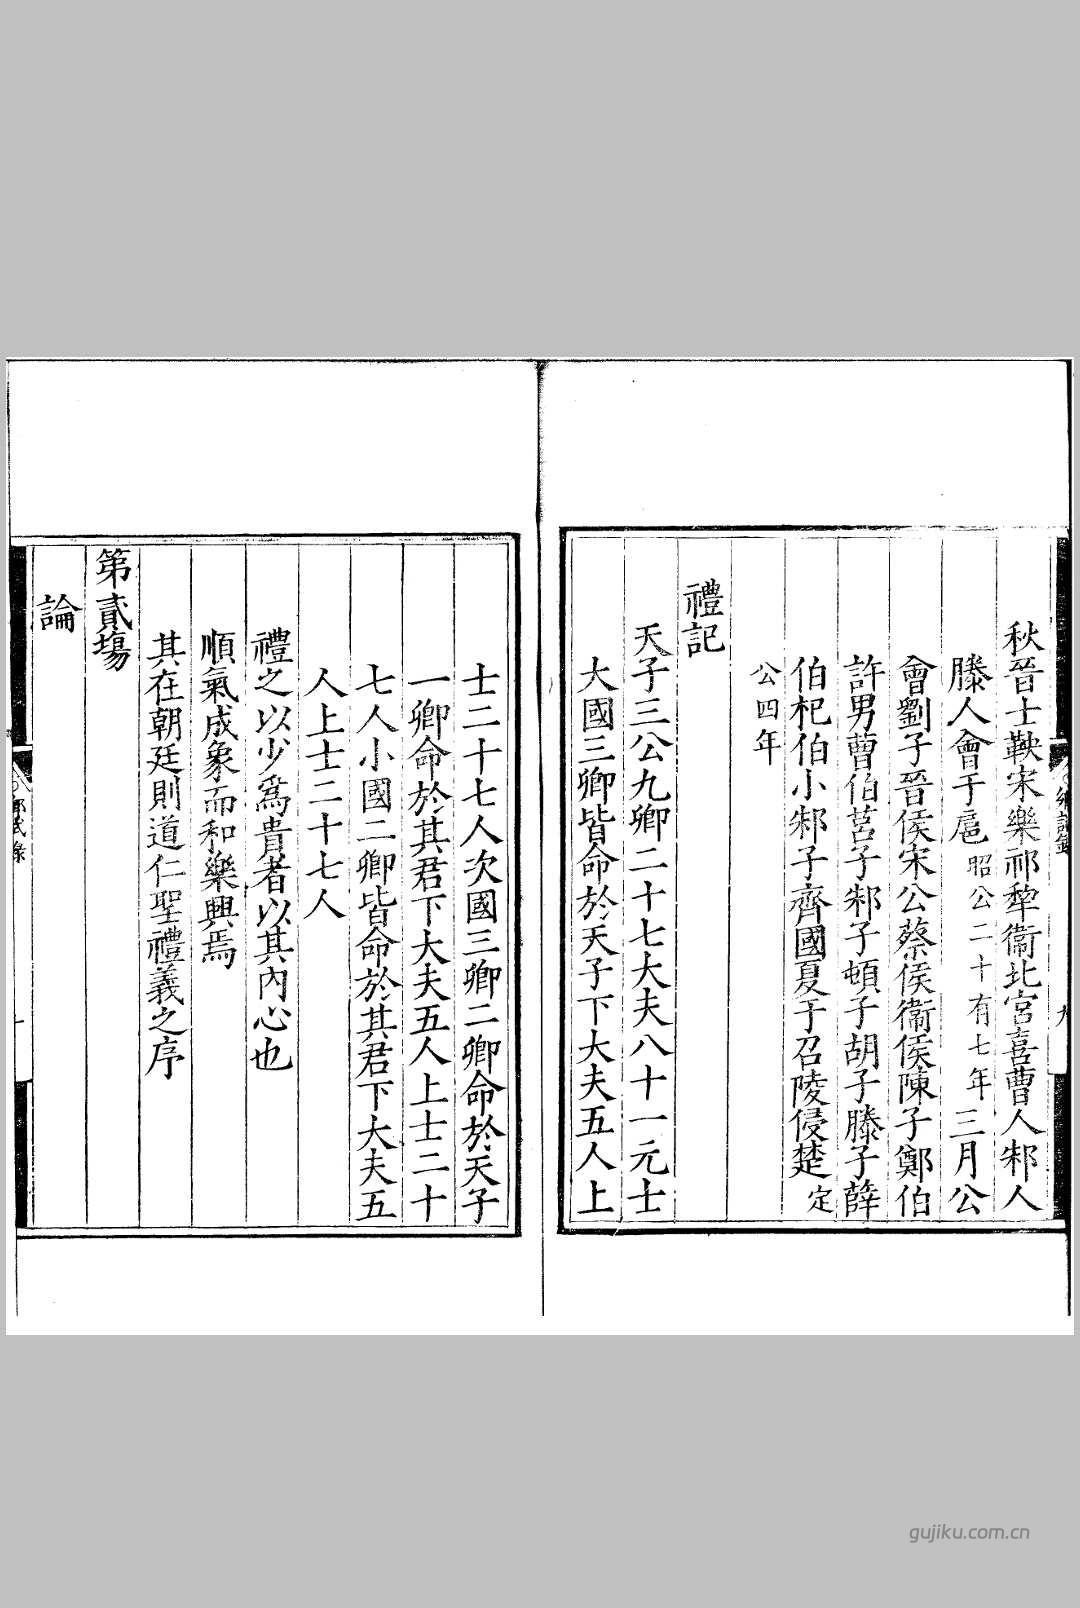 秋晉士鞅宋樂祁犂衞北宮喜曹人邾人
滕人會于扈昭公二十有七年三月公
會劉子晉侯宋公蔡侯衞侯陳子鄭伯
許男曹伯莒子邾子頓子胡子滕子薛
伯杞伯小邾子齊國夏于召陵侵楚定
公四年
禮記
天子三公九卿二十七大夫八十一元士
大國三卿皆命於天子下大夫五人上
士二十七人次國三卿二卿命於天子
一卿命於其君下大夫五人上士二十
七人小國二卿皆命於其君下大夫五
人上士二十七人
禮之以少爲貴者以其內心也
順氣成象而和樂興焉
其在朝廷則道仁聖禮義之序
第貳場
論
gujiku.com.cn